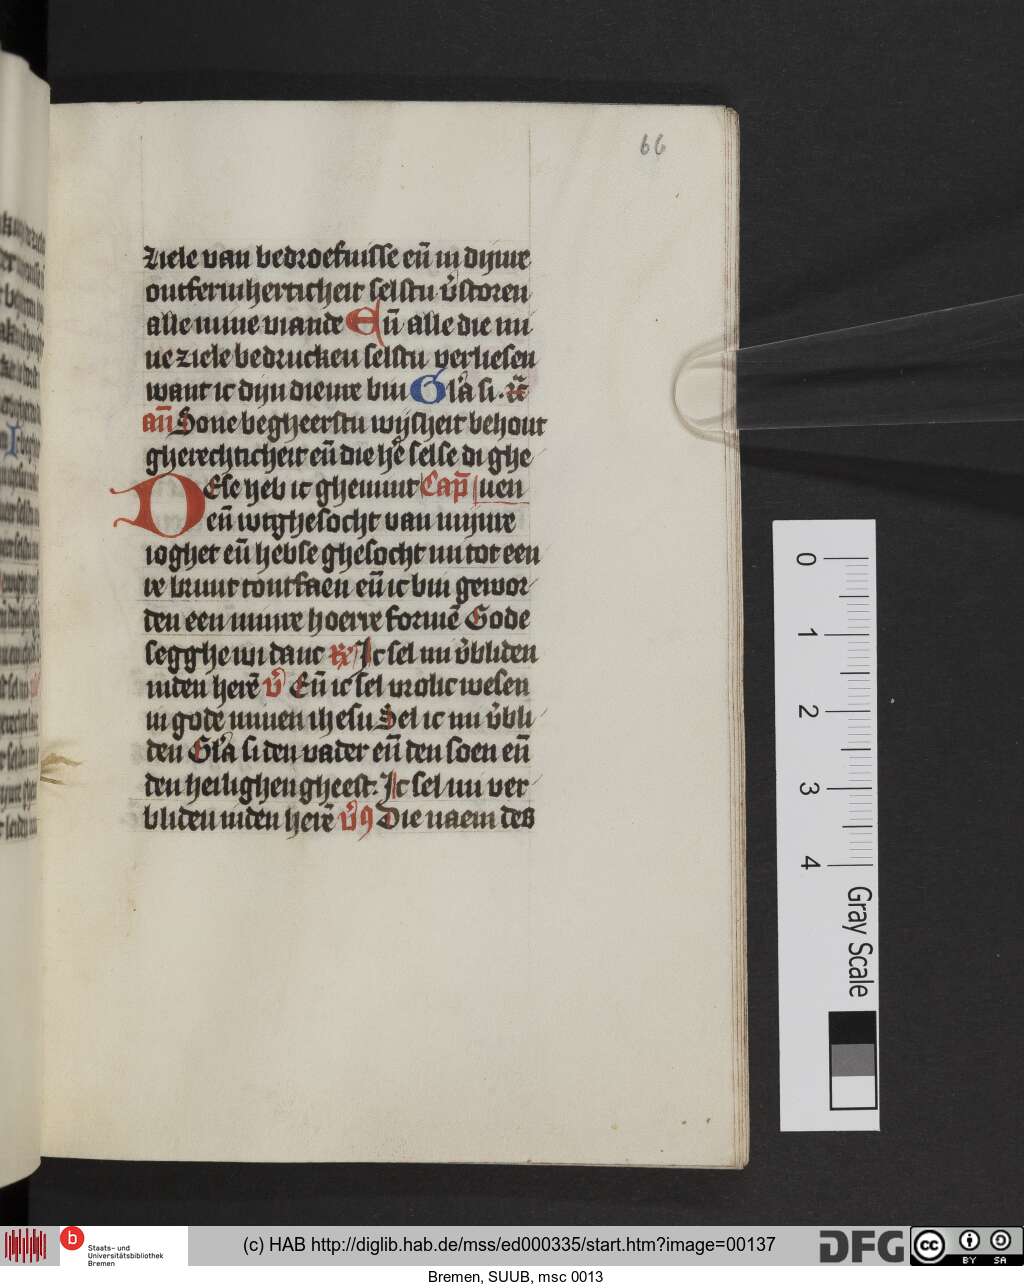 66
ziele van bedroefnisse eñ in dijnre
ontfermherticheit selstu v̾storen
alle mine viande Eñ alle die mi
ne ziele bedrucken selstu verliesen
want ic dijn dienre bin Gl̾a si.
añ Sone begheerstu wijsheit behout
gherechticheit eñ die hẽ selse di ghe
DEse heb ic ghemint Cap̃ uen
eñ wtghesocht van mijnre
ioghet eñ hebse ghesocht mi tot een
re bruut tontfaen eñ ic bin gewor
den een minre hoerre formẽ Gode
segghe wi danc Ic sel mi v̾bliden
inden herẽ v̾ Eñ ic sel vrolic wesen
in gode minen ihesu Sel ic mi v̾bli
den Gl̾a si den vader eñ den soen eñ
den heilighen gheest. Ic sel mi ver
bliden inden herẽ v̾s Die naem des
0
1
2
3
4
Gray Scale
b
Staats- und
Universitätsbibliothek
Bremen
(c) HAB http://diglib.hab.de/mss/ed000335/start.htm?image=00137
DFG
cc
BY SA
Bremen, SUUB, msc 0013